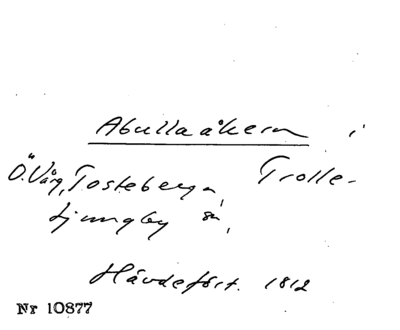 Abullaåkern i
Ö. Våg, Tosteberga, Trolle-
Ljungby sn,
Hävdefört. 1812
Nr 10877